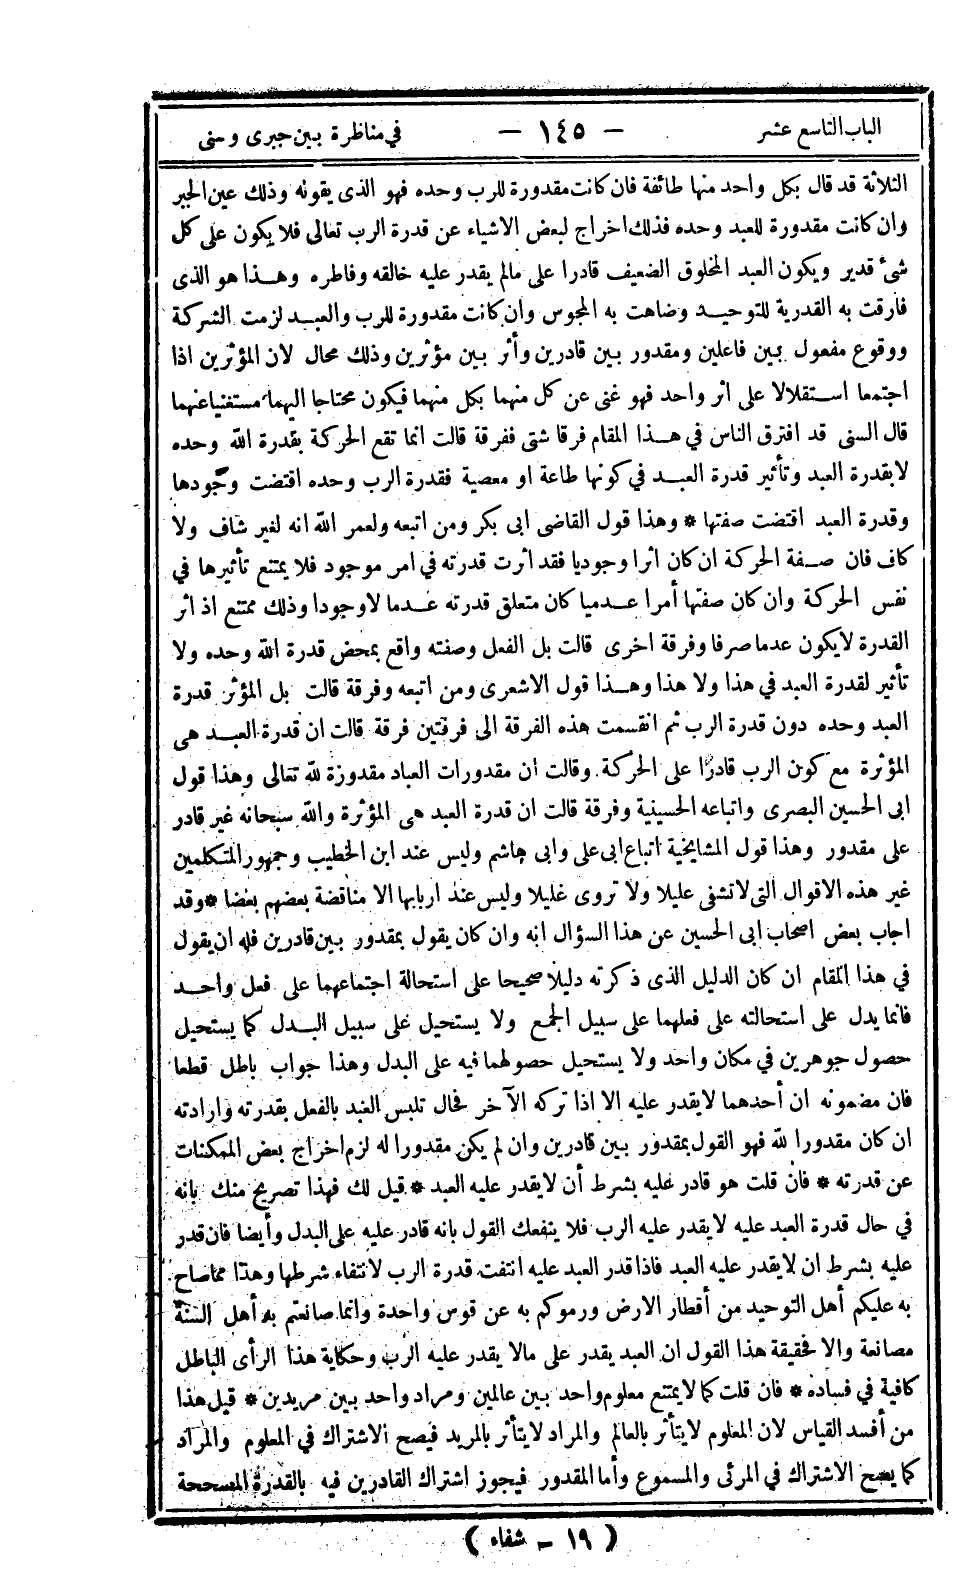 الباب التاسع عشر — ١٤٥ — في مناظرة بين جبرى وسنى
الثلاثة قد قال بكل واحد منها طائفة فان كانت مقدورة للرب وحده فهو الذى يقونه وذلك عين الجبر
وان كانت مقدورة للعبد وحده فذلك اخراج لبعض الاشياء عن قدرة الرب تعالى فلا يكون على كل
شئ قدير ويكون العبد المخلوق الضعيف قادرا على مالم يقدر عليه خالقه وفاطره وهذا هو الذى
فارقت به القدرية للتوحيد وضاهت به المجوس وان كانت مقدورة للرب والعبد لزمت الشركة
ووقوع مفعول بين فاعلين ومقدور بين قادرين وأثر بين مؤثرين وذلك محال لان المؤثرين اذا
اجتمعا استقلالا على اثر واحد فهو غنى عن كل منهما بكل منهما فيكون محتاجا اليهما مستغنيا عنهما
قال السنى قد افترق الناس في هذا المقام فرقا شتى ففرقة قالت انما تقع الحركة بقدرة الله وحده
لا بقدرة العبد وتأثير قدرة العبد في كونها طاعة او معصية فقدرة الرب وحده اقتضت وجودها
وقدرة العبد اقتضت صفتها * وهذا قول القاضى ابى بكر ومن اتبعه ولعمر الله انه لغير شاف ولا
كاف فان صفة الحركة ان كان اثرا وجوديا فقد اثرت قدرته في امر موجود فلا يمتنع تأثيرها في
نفس الحركة وان كان صفتها أمرا عدميا كان متعلق قدرته عدما لا وجودا وذلك ممتنع اذ اثر
القدرة لا يكون عدما صرفا وفرقة اخرى قالت بل الفعل وصفته واقع بمحض قدرة الله وحده ولا
تأثير لقدرة العبد في هذا ولا هذا وهذا قول الاشعرى ومن اتبعه وفرقة قالت بل المؤثر قدرة
العبد وحده دون قدرة الرب ثم انقسمت هذه الفرقة الى فرقتين فرقة قالت ان قدرة العبد هى
المؤثرة مع كون الرب قادرا على الحركة وقالت ان مقدورات العباد مقدورة لله تعالى وهذا قول
ابى الحسين البصرى واتباعه الحسينية وفرقة قالت ان قدرة العبد هى المؤثرة والله سبحانه غير قادر
على مقدور وهذا قول المشايخية اتباع ابى على وابى هاشم وليس عند ابن الخطيب وجمهور المتكلمين
غير هذه الاقوال التى لا تشفى عليلا ولا تروى غليلا وليس عند اربابها الا مناقضة بعضهم بعضا * وقد
اجاب بعض اصحاب ابى الحسين عن هذا السؤال انه وان كان يقول بمقدور بين قادرين فله ان يقول
في هذا المقام ان كان الدليل الذى ذكرته دليلا صحيحا على استحالة اجتماعهما على فعل واحد
فانما يدل على استحالته على فعلهما على سبيل الجمع ولا يستحيل على سبيل البدل كما يستحيل
حصول جوهرين في مكان واحد ولا يستحيل حصولهما فيه على البدل وهذا جواب باطل قطعا
فان مضمونه ان أحدهما لا يقدر عليه الا اذا تركه الآخر فحال تلبس العبد بالفعل بقدرته وارادته
ان كان مقدورا لله فهو القول بمقدور بين قادرين وان لم يكن مقدورا له لزم اخراج بعض الممكنات
عن قدرته * فان قلت هو قادر عليه بشرط أن لا يقدر عليه العبد * قيل لك فهذا تصريح منك بانه
في حال قدرة العبد عليه لا يقدر عليه الرب فلا ينفعك القول بانه قادر عليه على البدل وأيضا فان قدر
عليه بشرط ان لا يقدر عليه العبد فاذا قدر العبد عليه انتفت قدرة الرب لانتفاء شرطها وهذا مما صاح
به عليكم أهل التوحيد من أقطار الارض ورموكم به عن قوس واحدة وانما صانعتم به أهل السنة
مصانعة والا فحقيقة هذا القول ان العبد يقدر على مالا يقدر عليه الرب وحكاية هذا الرأى الباطل
كافية في فساده * فان قلت كما لا يمتنع معلوم واحد بين عالمين ومراد واحد بين مريدين * قيل هذا
من أفسد القياس لان المعلوم لا يتأثر بالعالم والمراد لا يتأثر بالمريد فيصح الاشتراك في المعلوم والمراد
كما يصح الاشتراك في المرئى والمسموع وأما المقدور فيجوز اشتراك القادرين فيه بالقدرة المصححة
( ١٩ — شفاء )